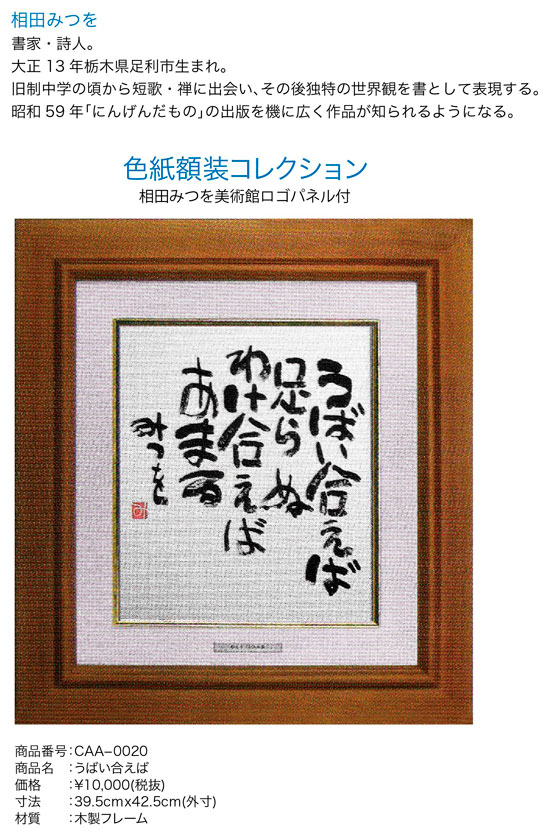 相田みつを
書家・詩人。
大正13年栃木県足利市生まれ。
旧制中学の頃から短歌・禅に出会い、その後独特の世界観を書として表現する。
昭和59年「にんげんだもの」の出版を機に広く作品が知られるようになる。
色紙額装コレクション
相田みつを美術館ロゴパネル付
うばい合えば
足らぬ
わけ合えば
あまる
みつを
商品番号：CAA−0020
商品名　：うばい合えば
価格　　：¥10,000(税抜)
寸法　　：39.5cmx42.5cm(外寸)
材質　　：木製フレーム